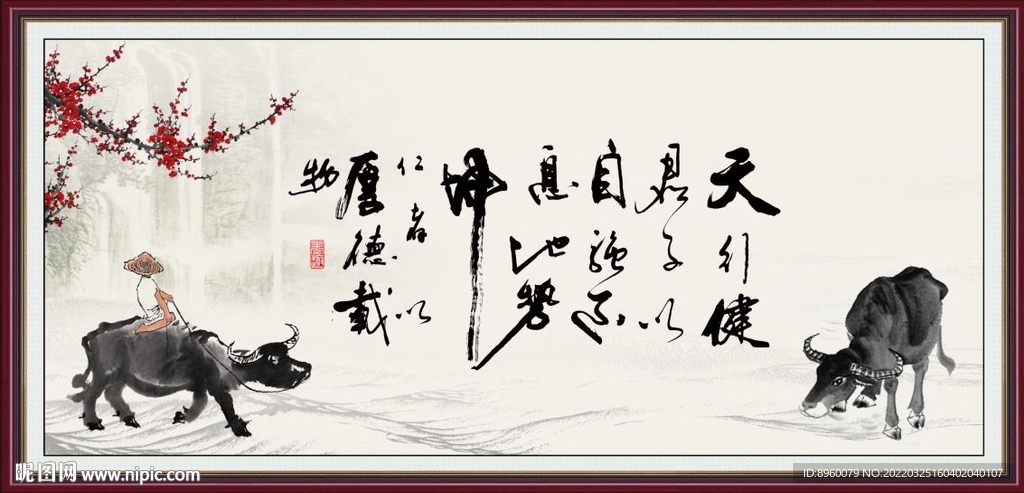 天行健
君子以
自強不
息地勢
坤
仁者以
厚德載
物
昵图网 www.nipic.com
ID:8960079 NO:20220325160402040107